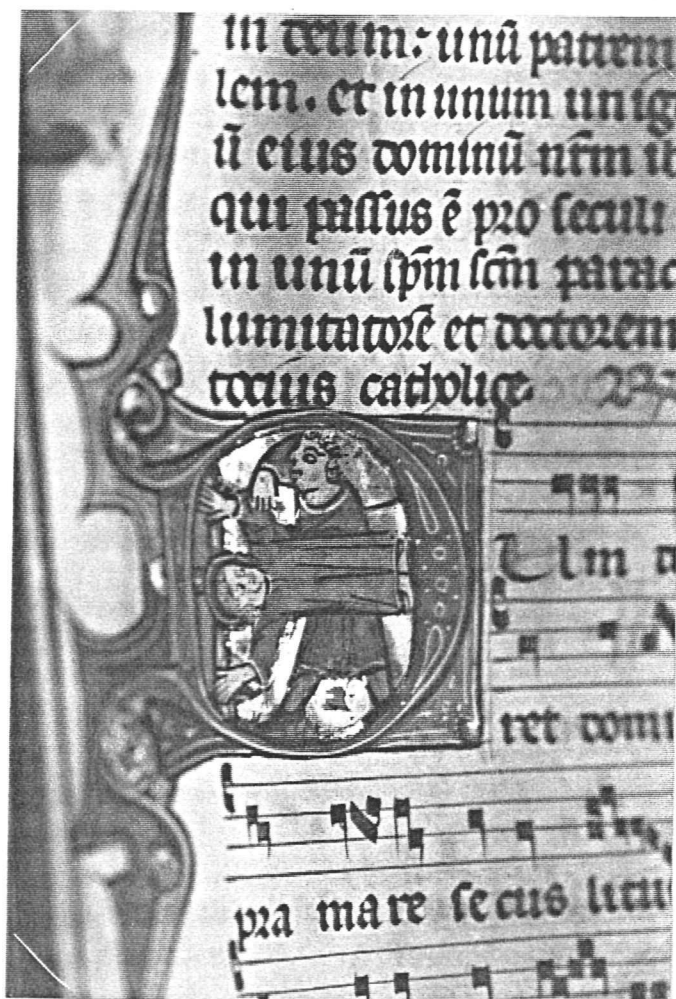 in deum: unū patrem
lem. et in unum unig
ū eius dominū nr̄m ih
qui passus ē pro seculi
in unū sp̄m sc̄m parac
lumitatorē et doctorem
tocius catholice.
Um d
ret domi
pra mare secus litu